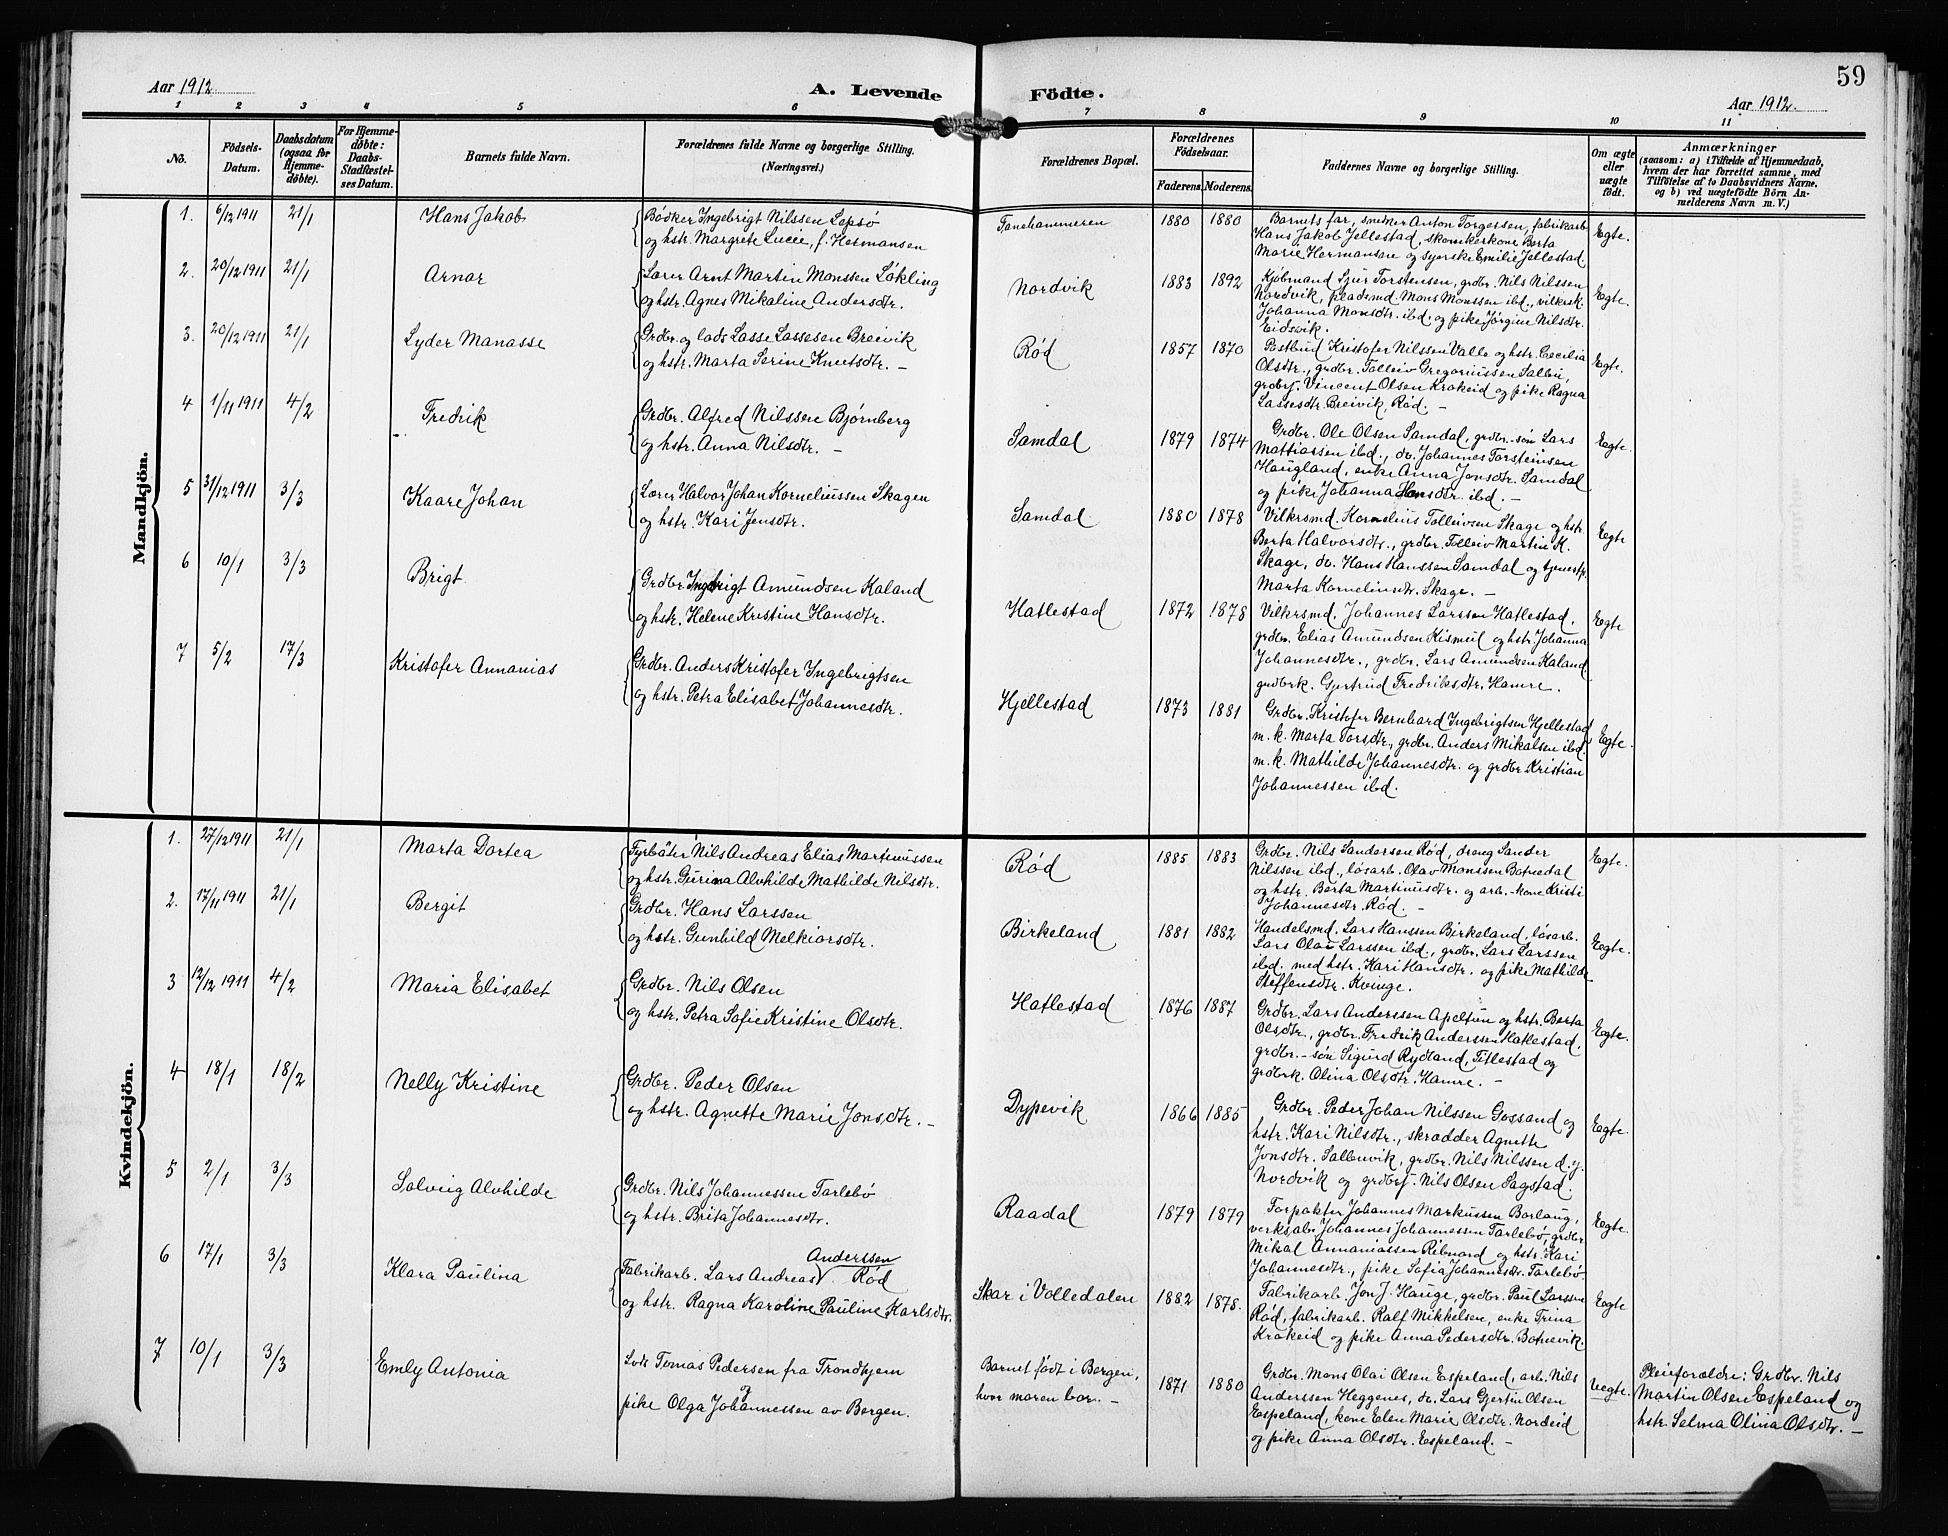 59
Aar 1912
A. Levende Födte.
Aar 1912.
1 2 3 4 5 6 7 8 9 10 11
No.
Födsels-Datum.
Daabsdatum (ogsaa for Hjemme-döbte).
For Hjemme-döbte: Daabs-Stadfæstel-ses Datum.
Barnets fulde Navn.
Forældrenes fulde Navne og borgerlige Stilling.
(Næringsvei.)
Forældrenes Bopæl.
Forældrenes Födselsaar.
Faderens. Moderens.
Faddernes Navne og borgerlige Stilling.
Om ægte eller uægte födt.
Anmærkninger
(saasom: a) i Tilfælde af Hjemmedaab,
hvem der har forrettet samme, med
Tilföielse af to Daabsvidners Navne.
og b) ved uægtefödte Börn An-
melderens Navn m. V.)
Mandkjön.
1. 6/12 1911 21/1 Hans Jakob
Bødker Ingebrigt Nilssen Lepsø
og hstr. Margrete Lucie, f. Hermansen
Fanehammeren 1880 1880
Barnets far, snedker Anton Torgersen, fabrikarb.
Hans Jakob Jellestad, skomakerkone Berta
Marie Hermansen og syerske Emilie Jellestad.
Egte.
2. 20/12 1911 21/1 Arnar
Lærer Arnt Martin Monssen Løkling
og hstr. Agnes Mikaline Andersdtr.
Nordvik 1883 1892
Kjøbmand Sjur Torstensen, grdbr. Nils Nilssen
Nordvik, pladsmd. Mons Monssen ibd., vilkrsk.
Johanna Monsdtr. ibd. og pike Jørgine Nilsdtr.
Eidsvik.
Egte.
3. 20/12 1911 21/1 Lyder Manasse
Grdbr. og lods Lasse Lassesen Breivik
og hstr. Marta Serine Knutsdtr. —
Rød 1857 1870
Postbud Kristofer Nilssen Valle og hstr. Cecilia
Olsdtr., grdbr. Tolleiv Gregoriussen Salbu,
grdbrf. Vincent Olsen Krokeid og pike Ragna
Lassesdtr. Breivik, Rød. —
Egte.
4 1/11 1911 4/2 Fredrik
Grdbr. Alfred Nilssen Bjørnberg
og hstr. Anna Nilsdtr. —
Samdal 1879 1874
Grdbr. Ole Olsen Samdal, grdbr.-søn Lars
Mattiassen ibd., do. Johannes Torsteinsen
Haugland, enke Anna Jonsdtr. Samdal
og pike Johanna Hansdtr. ibd. —
Egte
5 31/12 1911 3/3 Kaare Johan
Lærer Halvor Johan Korneliussen Skagen
og hstr. Kari Jensdtr.
Samdal 1880 1878
Vilkrsmd. Kornelius Tolleivsen Skage og hstr
Berta Halvorsdtr., grdbr. Tolleiv Martin K.
Skage, do. Hans Hanssen Samdal og tjenestp.
Marta Korneliusdtr. Skage. —
Egte
6 10/1 3/3 Brigt
Grdbr. Ingebrigt Amundsen Kaland
og hstr. Helene Kristine Hansdtr.
Hatlestad 1872 1878
Vilkrsmd. Johannes Larssen Hatlestad,
grdbr. Elias Amundsen Kismul og hstr. Johanna
Johannesdtr., grdbr. Lars Amundsen Kaland
grdbrk. Gjertrud Fredriksdtr. Hamre.
Egte
7 5/2 17/3 Kristofer Annanias
Grdbr. Anders Kristofer Ingebrigtsen
og hstr. Petra Elisabet Johannesdtr.
Hjellestad 1873 1881
Grdbr. Kristofer Bernhard Ingebrigtsen Hjellestad
m. k. Marta Torsdtr., grdbr. Anders Mikalsen ibd.
m. k. Mathilde Johannesdtr. og grdbr. Kristian
Johannessen ibd.
Egte.
Kvindekjön.
1. 27/12 1911 21/1 Marta Dortea
Fyrbøter Nils Andreas Elias Martinussen
og hstr. Gurina Alvhilde Mathilde Nilsdtr.
Rød 1885 1883
Grdbr. Nils Sandersen Rød, dreng Sander
Nilssen ibd., løsarb. Olav Monssen Botnedal
og hstr. Berta Martinusdtr. og arb.-kone Kristi
Johannesdtr. Rød. —
Egte.
2. 17/11 1911 21/1 Bergit
Grdbr. Hans Larssen
og hstr. Gunhild Melkiorsdtr.
Birkeland 1881 1882
Handelsmd. Lars Hanssen Birkeland, løsarb.
Lars Olav Larssen ibd., grdbr. Lars Larssen
ibd. med hstr. Kari Hansdtr. og pike Mathilde
Steffensdtr. Kvinge.
Egte.
3 12/12 1911 4/2 Maria Elisabet
Grdbr. Nils Olsen
og hstr. Petra Sofie Kristine Olsdtr.
Hatlestad 1876 1887
Grdbr. Lars Anderssen Apeltun og hstr. Berta
Olsdtr., grdbr. Fredrik Anderssen Hatlestad,
grdbr.-søn Sigurd Rydland, Titlestad og
grdbrk. Olina Olsdtr. Hamre. —
Egte.
4 18/1 18/2 Nelly Kristine
Grdbr. Peder Olsen
og hstr. Agnette Marie Jonsdtr. —
Dypevik 1866 1885
Grdbr. Peder Johan Nilssen Gossand og
hstr. Kari Nilsdtr., skrædder Agnette
Jonsdtr. Søllesvik, grdbr. Nils Nilssen d. y.
Nordvik og grdbrf. Nils Olsen Sagstad.
Egte.
5 2/1 3/3 Solveig Alvhilde
Grdbr. Nils Johannessen Tarlebø
og hstr. Brita Johannesdtr.
Raadal 1879 1879
Forpakter Johannes Markussen Borlaug,
verksabr. Johannes Johannessen Tarlebø, grdbr.
Mikal Annaniassen Ribnard og hstr. Kari
Johannesdtr., pike Sofia Johannesdtr. Tarlebø.
Egte.
6 17/1 3/3 Klara Paulina
Anderssen
Fabrikarb. Lars Andreas Rød
og hstr. Ragna Karoline Pauline Karlsdtr.
Skar i Volledalen 1882 1878.
Fabrikarb. Jon J. Hauge, grdbr. Paul Larssen
Rød, fabrikarb. Ralf Mikkelsen, enke Trina
Krokeid og pike Anna Pedersdtr. Botnevik.
Egte
7 10/1 3/3 Emly Antonia
Lods Tomas Pedersen fra Trondhjem
og
pike Olga Johannessen av Bergen.
Barnet født i Bergen,
hvor moren bor. —
1871 1880
Grdbr. Mons Olai Olsen Espeland, arb. Nils
Anderssen Heggenes, do. Lars Gjertin Olsen
Espeland, kone Elen Marie Olsdtr. Nordeid
og pike Anna Olsdtr. Espeland. —
Uegte.
Pleieforældre: Grdbr. Nils
Martin Olsen Espeland og
hstr. Selma Olina Olsdtr. —